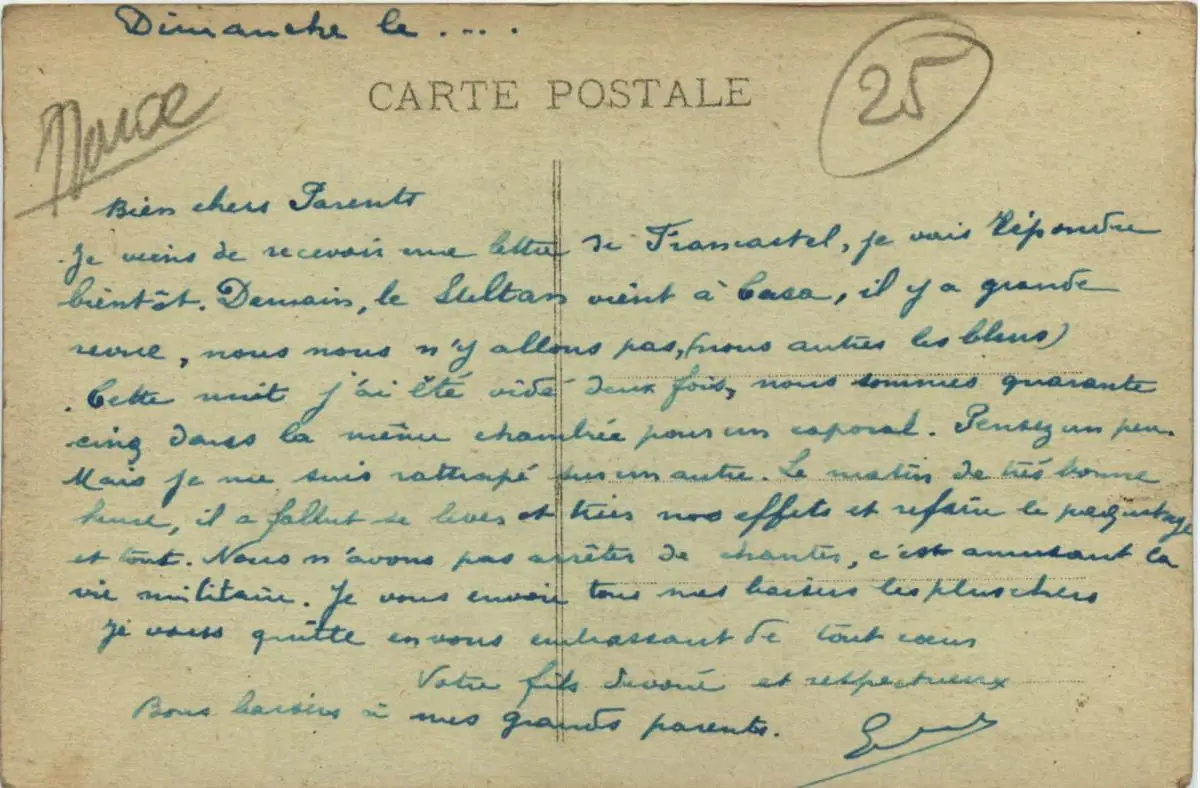 Dimanche le ....
CARTE POSTALE
25
Maroc
Bien chers Parents
Je viens de recevoir une lettre de Francastel, je vais répondre
bientôt. Demain, le Sultan vient à Casa, il y a grande
revue, nous nous n'y allons pas, (nous autres les bleus)
Cette nuit j'ai été vidé deux fois, nous sommes quarante
cinq dans la même chambrée pour un caporal. Pensez un peu.
Mais je me suis rattrapé sur un autre. Le matin de très bonne
heure, il a fallut se lever et trier nos effets et refaire le paquetage
et tout. Nous n'avons pas arrêter de chanter, c'est amusant la
vie militaire. Je vous envoie tous mes baisers les plus chers
Je vous quitte en vous embrassant de tout cœur
Votre fils dévoué et respectueux
Bons baisers à mes grands parents.